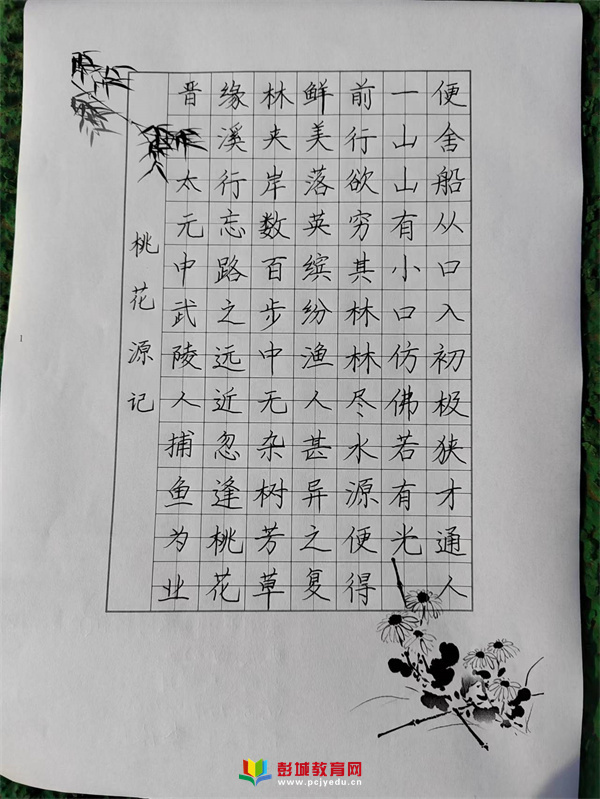 桃花源记
晋太元中武陵人捕鱼为业
缘溪行忘路之远近忽逢桃花
林夹岸数百步中无杂树芳草
鲜美落英缤纷渔人甚异之复
前行欲穷其林林尽水源便得
一山山有小口仿佛若有光
便舍船从口入初极狭才通人
彭城教育网
www.pcjyedu.cn